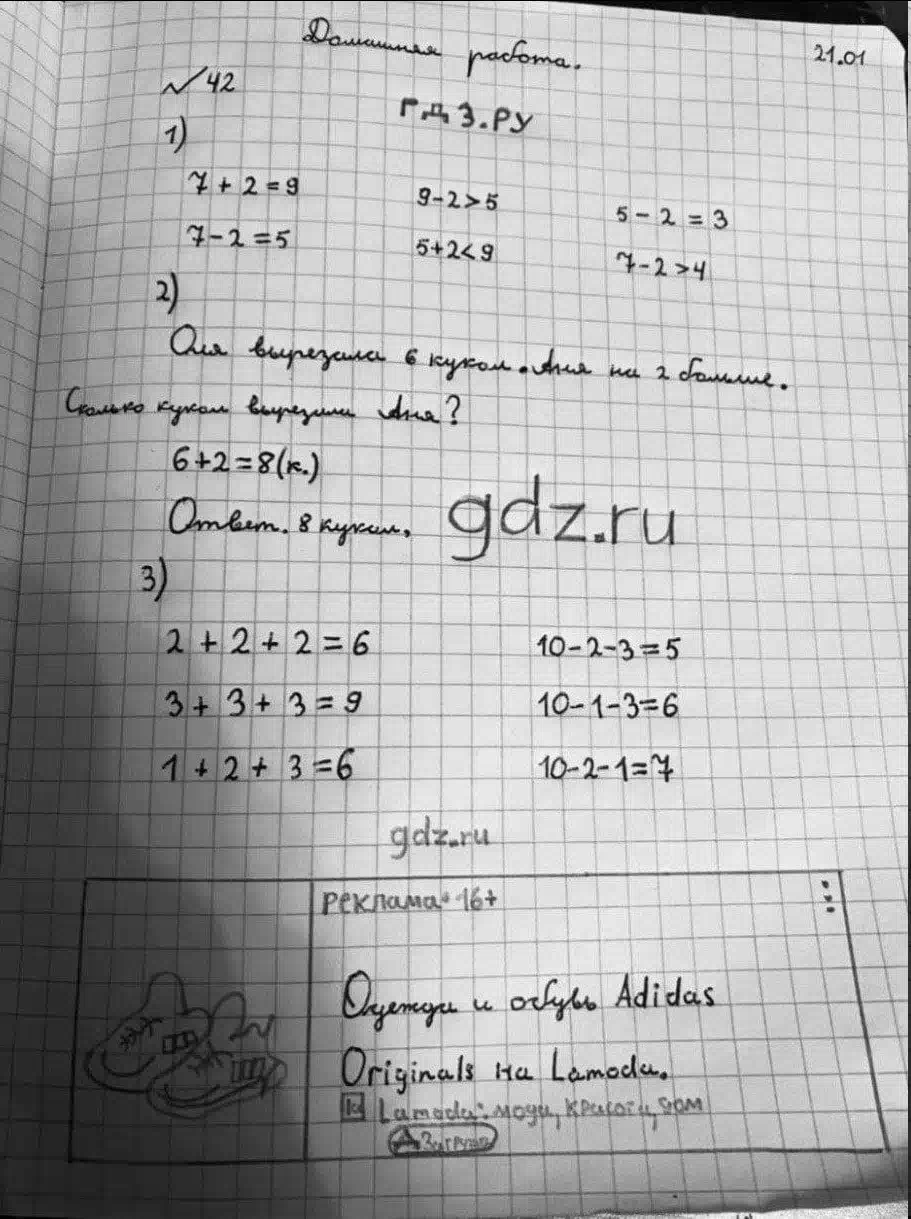 Домашняя работа.
21.01
№ 42
ГДЗ.РУ
1)
7 + 2 = 9
9-2>5
5 - 2 = 3
7-2 = 5
5+2<9
7-2 >4
2)
Оля вырезала 6 кукол. Аня на 2 больше.
Сколько кукол вырезала Аня?
6+2=8(к.)
Ответ. 8 кукол.
gdz.ru
3)
2 + 2 + 2 = 6
10-2-3=5
3 + 3 + 3 = 9
10-1-3=6
1 + 2 + 3 =6
10-2-1=7
gdz.ru
Реклама • 16+
Одежда и обувь Adidas
Originals на Lamoda.
la Lamoda: мода, красота, дом